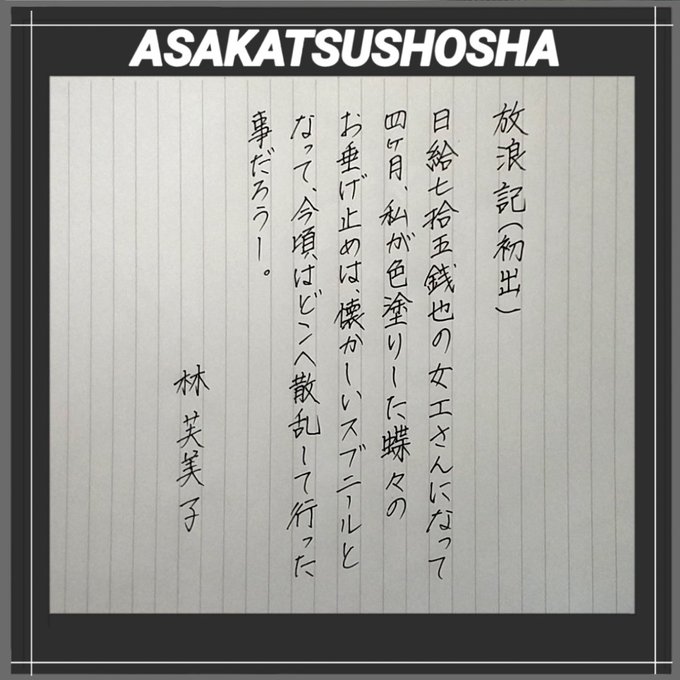 ASAKATSUSHOSHA
放浪記(初出)
日給七拾五銭也の女工さんになって
四ヶ月、私が色塗りした蝶々の
お垂げ止めは、懐かしいスブニールと
なって、今頃はどこへ散乱して行った
事だろうー。
林芙美子